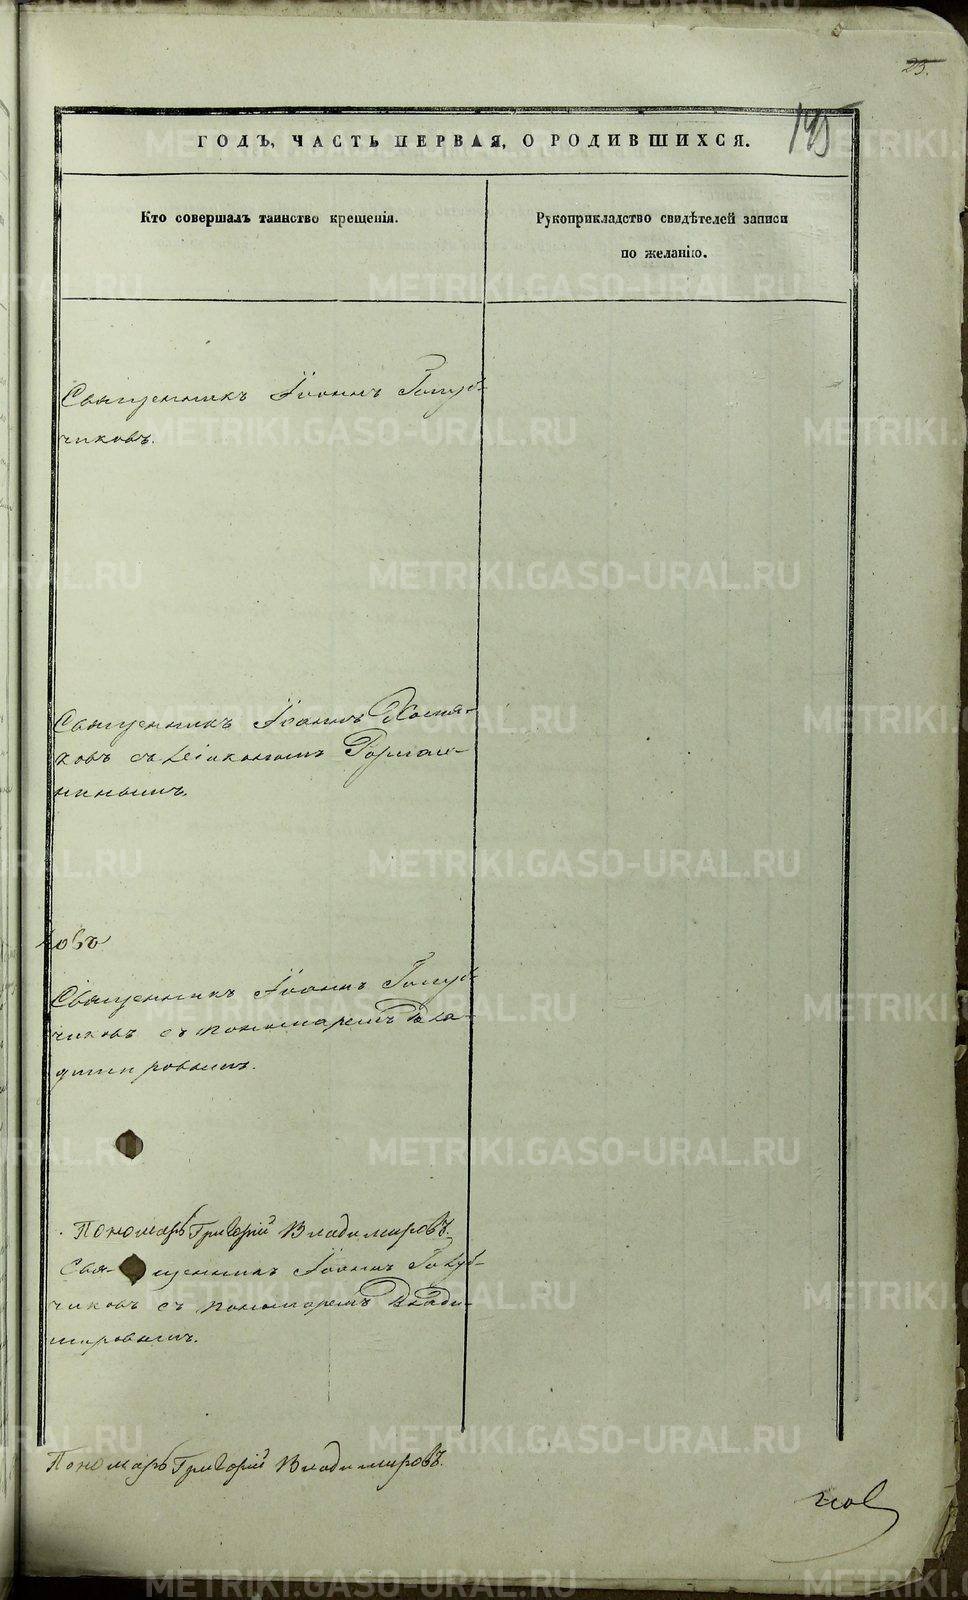 23.
195
ГОДЪ, ЧАСТЬ ПЕРВАЯ, О РОДИВШИХСЯ.
Кто совершалъ таинство крещенія.
Рукоприкладство свидѣтелей записи
по желанію.
Священникъ Іоаннъ Голуб-
чиковъ.
Священникъ Іоаннъ
ковъ съ діакономъ
нинымъ.
ковъ
Священникъ Іоаннъ Голуб-
чиковъ съ пономаремъ Вла-
димировымъ.
Пономарь Григорій Владимировъ.
Свя-щенникъ Іоаннъ Голуб-
чиковъ съ пономаремъ Влади-
мировымъ.
Пономарь Григорій Владимировъ.
METRIKI.GASO-URAL.RU